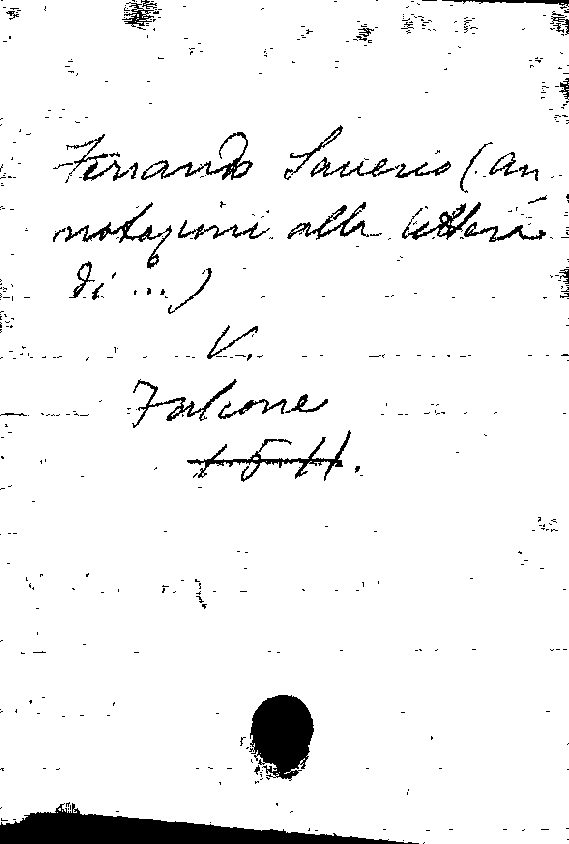 Ferrando Saverio (an
notazioni alla lettera
di ...)
V.
Falcone